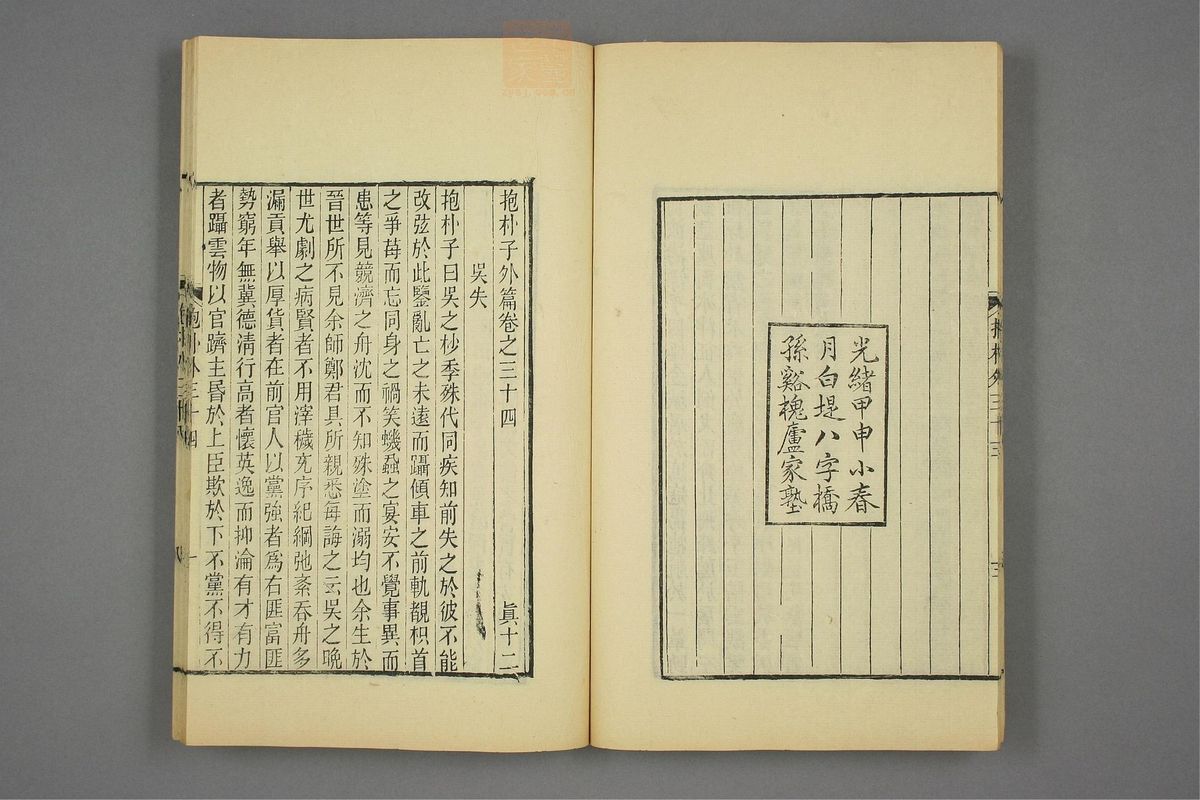 光緒甲申小春
月白堤八字橋
孫谿槐廬家塾
抱朴子外篇卷之三十四 真十二
吳失
抱朴子曰吳之杪季殊代同疾知前失之於彼不能
改弦於此鑒亂亡之未遠而躡傾車之前軌覩枳首
之爭莓而忘同身之禍笑蟣蝨之宴安不覺事異而
患等見競濟之舟沈而不知殊塗而溺均也余生於
晉世所不見余師鄭君具所親悉每誨之云吳之晚
世尤劇之病賢者不用滓穢充序紀綱弛紊吞舟多
漏貢舉以厚貨者在前官人以黨強者爲右匪富匪
勢窮年無冀德清行高者懷英逸而抑淪有才有力
者躡雲物以官躋主昏於上臣欺於下不黨不得不